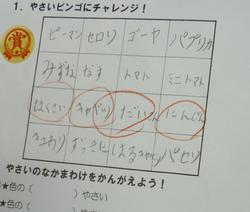 1. やさいビンゴにチャレンジ！
賞
ピーマン セロリ ゴーヤ パプリカ
みずな なす トマト ミニトマト
はくさい キャベツ だいこん にんじん
パセリ
やさいのなかまわけをかんがえよう！
★色の（ ）やさい
★色の（ ）やさい